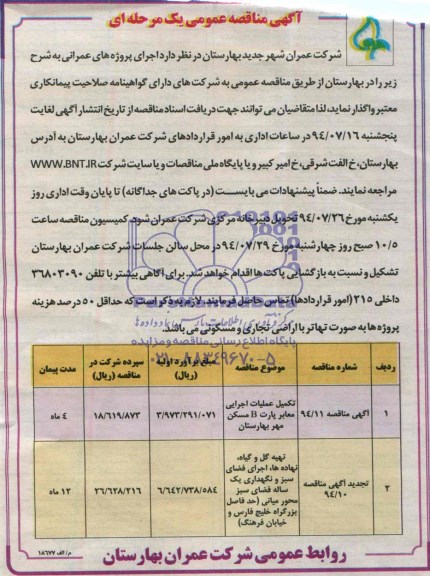 آگهی مناقصه عمومی یک مرحله ای
شرکت عمران شهر جدید بهارستان در نظر دارد اجرای پروژه های عمرانی به شرح
زیر را در بهارستان از طریق مناقصه عمومی به شرکت های دارای گواهینامه صلاحیت پیمانکاری
معتبر واگذار نماید، لذا متقاضیان می توانند جهت دریافت اسناد مناقصه از تاریخ انتشار آگهی لغایت
پنجشنبه ۹۴/۰۷/۱۶ در ساعات اداری به امور قراردادهای شرکت عمران بهارستان به آدرس
بهارستان، خ الفت شرقی، خ امیر کبیر و یا پایگاه ملی مناقصات و یا سایت شرکت WWW.BNT.IR
مراجعه نمایند. ضمناً پیشنهادات می بایست (در پاکت های جداگانه) تا پایان وقت اداری روز
یکشنبه مورخ ۹۴/۰۷/۲۶ تحویل دبیرخانه مرکزی شرکت عمران شود. کمیسیون مناقصه ساعت
۱۰/۵ صبح روز چهارشنبه مورخ ۹۴/۰۷/۲۹ در محل سالن جلسات شرکت عمران بهارستان
تشکیل و نسبت به بازگشایی پاکت ها اقدام خواهد شد. برای آگاهی بیشتر با تلفن ۳۶۸۰۳۰۹۰
داخلی ۲۱۵ (امور قراردادها) تماس حاصل فرمایند. لازم به ذکر است که حداقل ۵۰ درصد هزینه
پروژه ها به صورت تهاتر با اراضی تجاری و مسکونی می باشد.
پایگاه اطلاع رسانی مناقصه و مزایده
۰۲۱-۸۸۳۴۹۶۷۰-۵
ردیف شماره مناقصه موضوع مناقصه مبلغ برآورد اولیه (ریال) سپرده شرکت در مناقصه (ریال) مدت پیمان
۱ آگهی مناقصه ۹۴/۱۱ تکمیل عملیات اجرایی معابر پارت B مسکن مهر بهارستان ۳/۹۷۳/۲۹۱/۰۷۱ ۱۸/۶۱۹/۸۷۳ ۴ ماه
۲ تجدید آگهی مناقصه ۹۴/۱۰ تهیه گل و گیاه، نهاده ها، اجرای فضای سبز و نگهداری یک ساله فضای سبز محور میانی (حد فاصل بزرگراه خلیج فارس و خیابان فرهنگ) ۶/۶۴۲/۷۳۸/۵۸۴ ۲۶/۶۲۸/۲۱۶ ۱۲ ماه
روابط عمومی شرکت عمران بهارستان
م/الف ۱۸۶۷۷